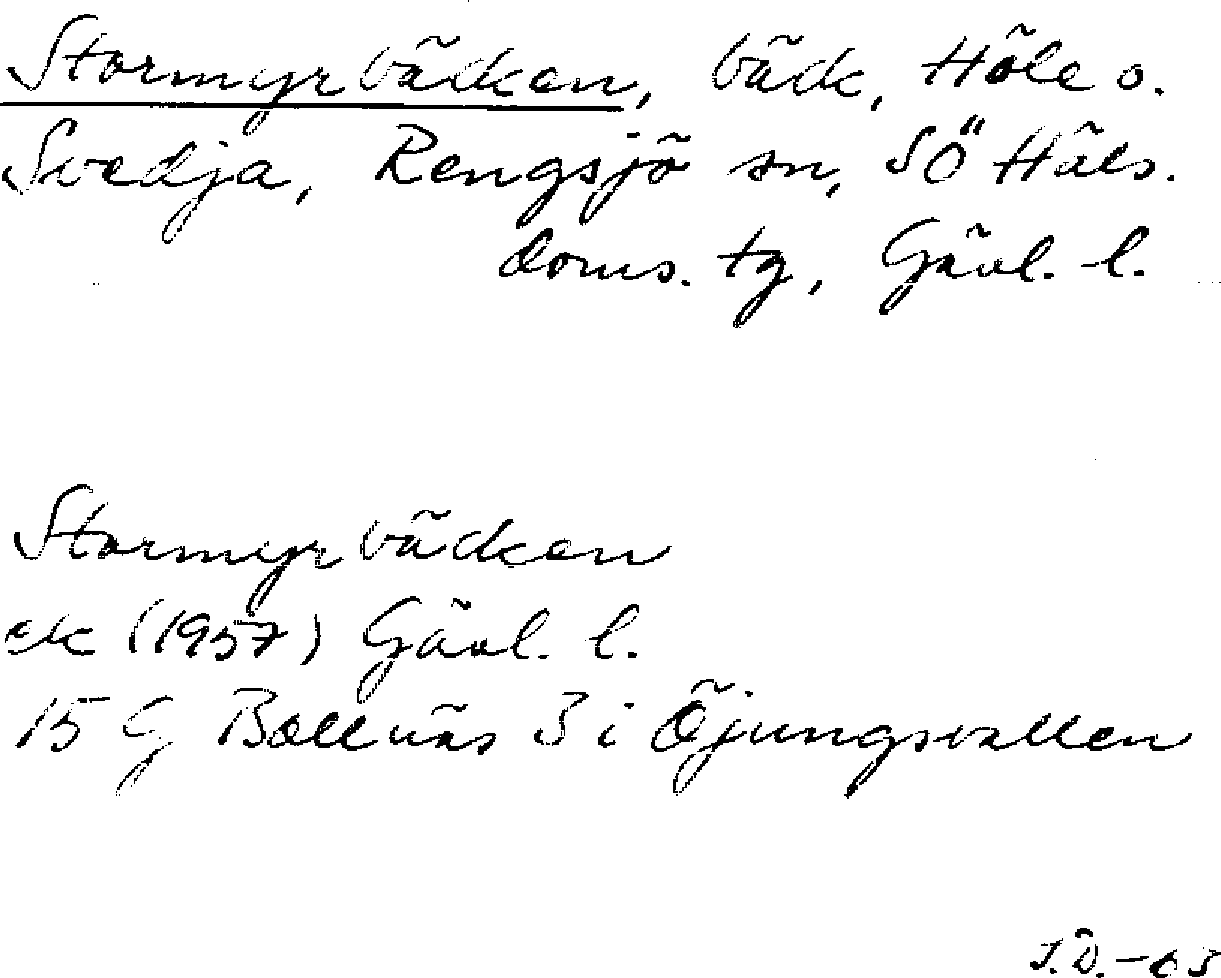 Stormyrbäcken, bäck, Höle o.
Svedja, Rengsjö sn, SÖ Häls.
doms. tg, Gävl. l.
Stormyrbäcken
ek (1957) Gävl. l.
15 G Bollnäs 3 i Öjungsvallen